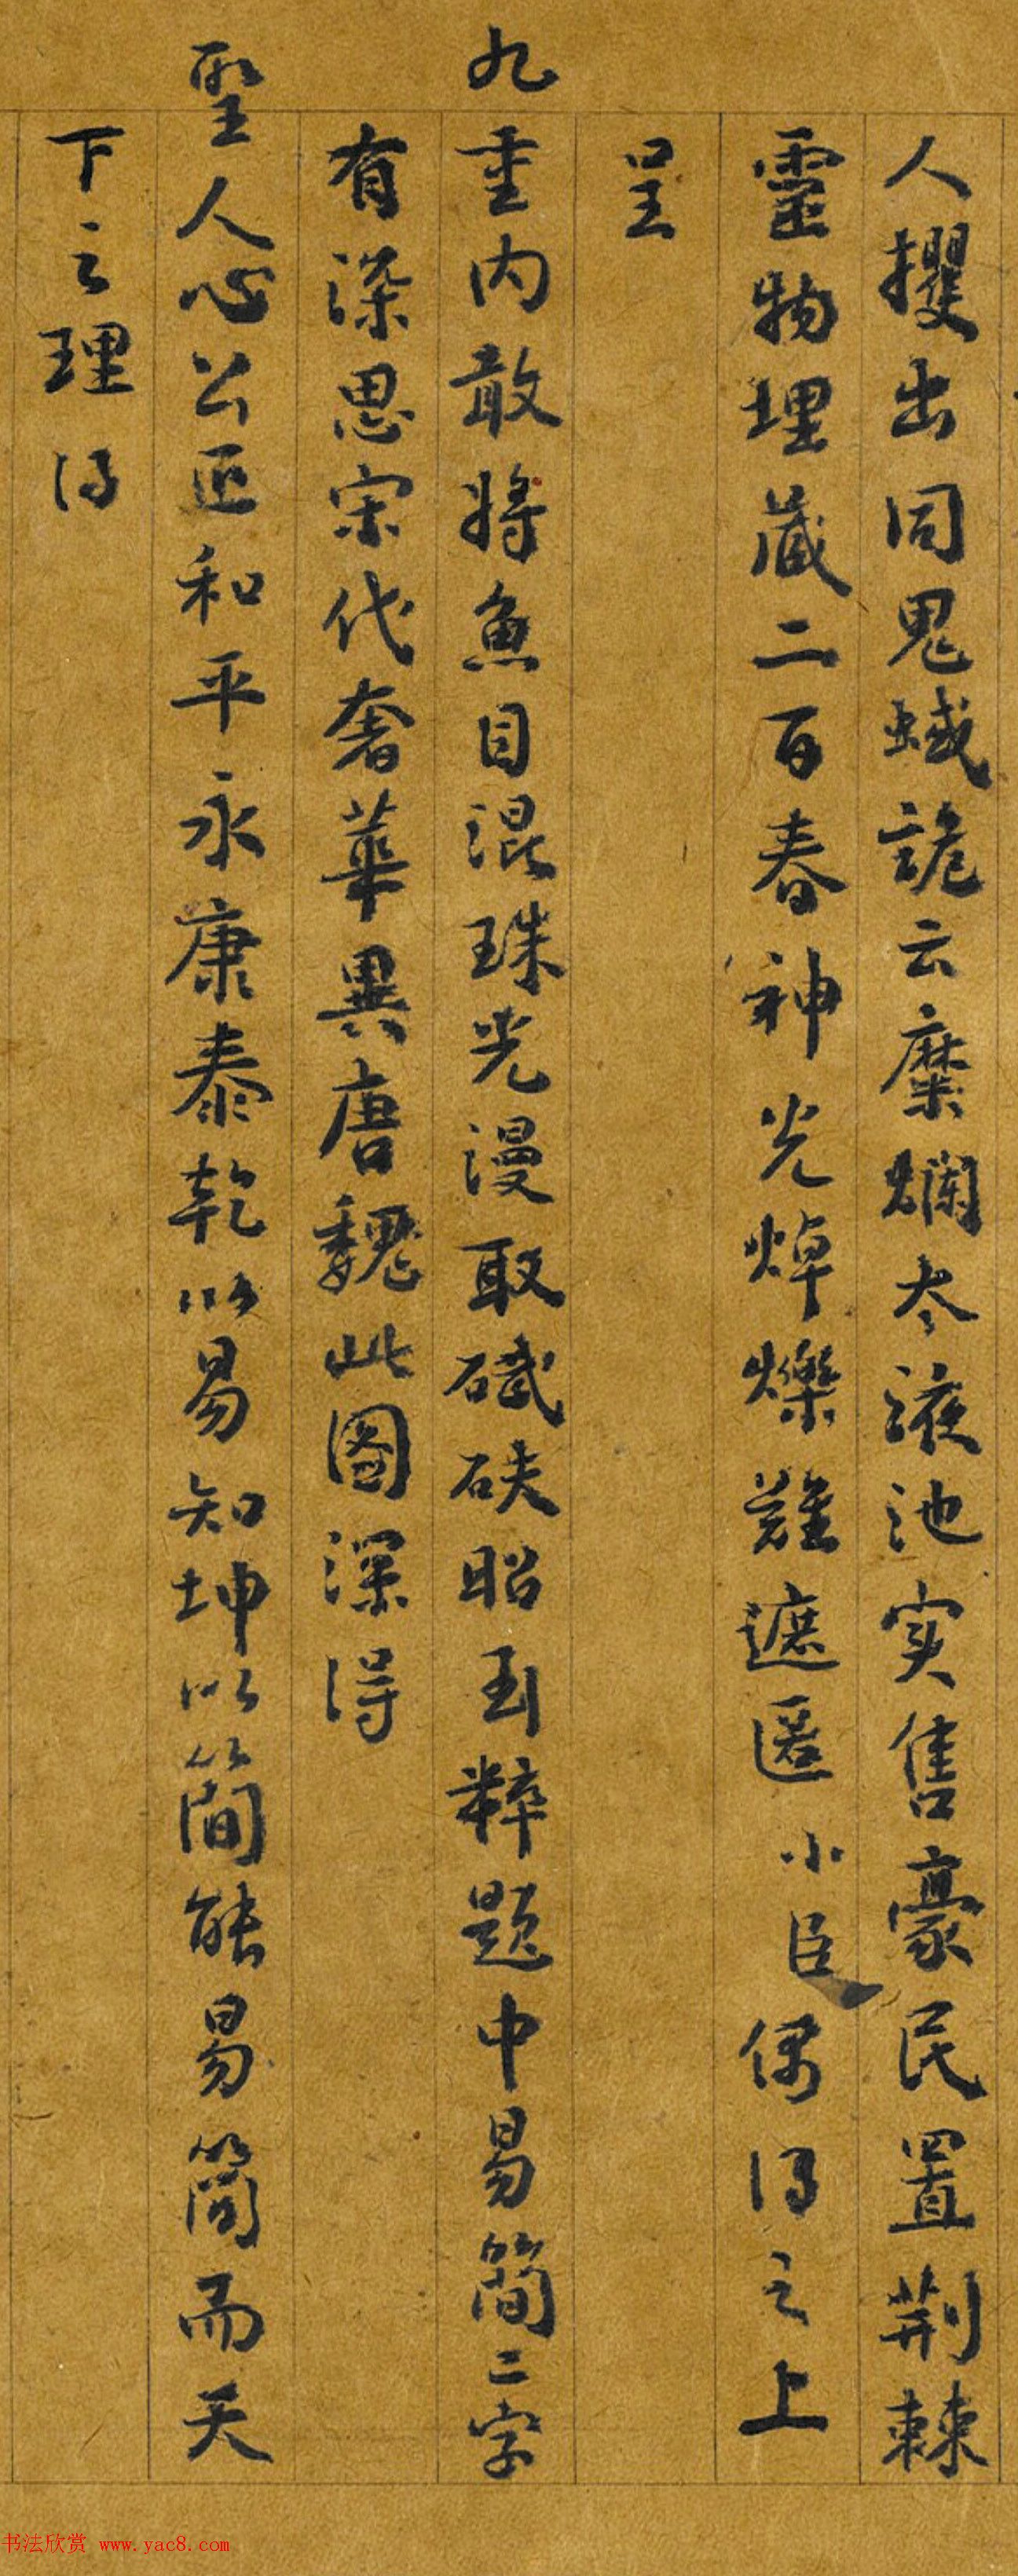 人攫出同鬼蜮詭云糜爛太液池实售豪民置荆棘
靈物埋藏二百春神光焯爍難遮匿小臣偶得之上
呈
九重内敢將魚目混珠光漫取碔砆昭玉粹題中易簡二字
有深思宋代奢華異唐魏此圖深得
聖人心公正和平永康泰乾以易知坤以簡能易簡而天
下之理得
书法欣赏 www.yac8.com